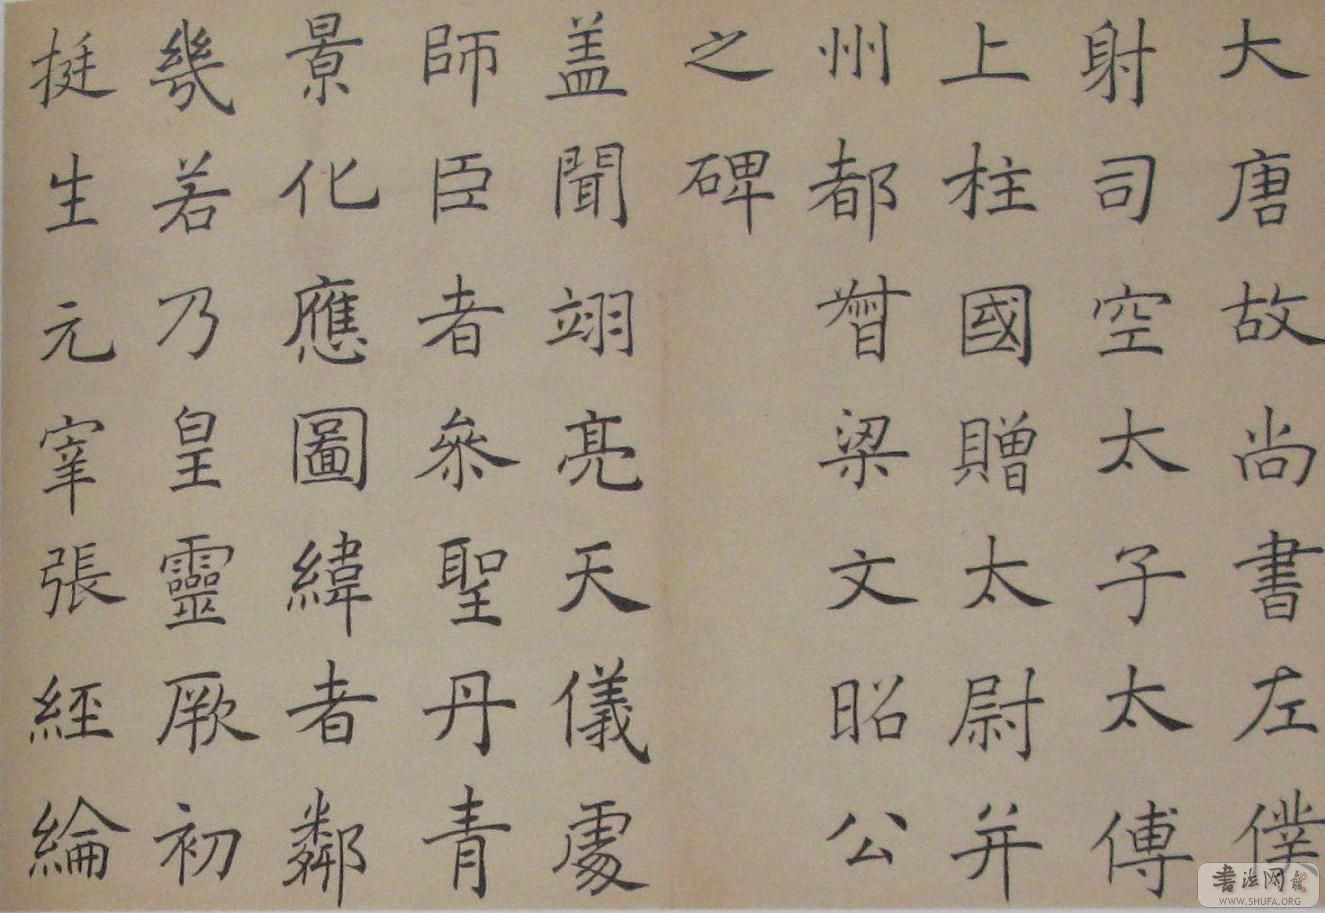 大唐故尚書左僕
射司空太子太傅
上柱國贈太尉并
州都督梁文昭公
之碑
盖聞翊亮天儀處
師臣者叅聖丹青
景化應圖緯者鄰
幾若乃皇靈厥初
挺生元宰張經綸
書法网
WWW.SHUFA.ORG